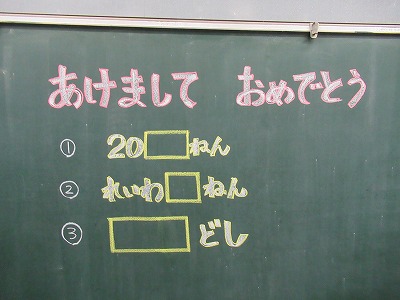 あけまして おめでとう
① 20□ねん
② れいわ□ねん
③ □どし